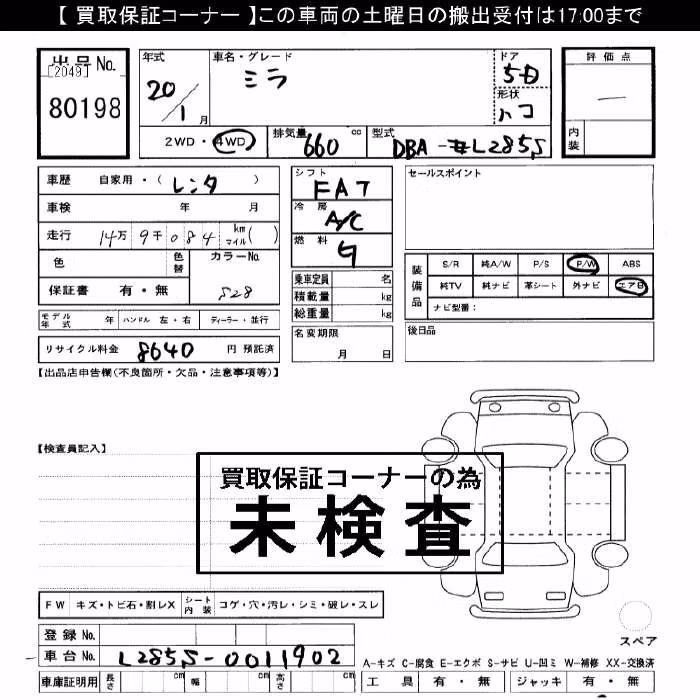 【 買取保証コーナー 】この車両の土曜日の搬出受付は17:00まで
出品 No.
[2049]
80198
年式
20/1月
車名・グレード
ミラ
ドア
5D
形状
ハコ
評価点
—
内装
2WD・4WD
排気量
660 cc
型式
DBA-L285S
車歴 自家用・( レンタ )
車検 年 月
走行 14万9千084 km マイル( )
色
色替
カラーNo.
S28
保証書 有・無
シフト
FAT
冷房
A/C
燃料
G
乗車定員 名
積載量 kg
総重量 kg
セールスポイント
装備品
S/R 純A/W P/S P/W ABS
純TV 純ナビ 革シート 外ナビ エアB
ナビ型番:
モデル年式 年 ハンドル 左・右 ディーラー・並行
名変期限
月 日
後日品
リサイクル料金 8640 円 預託済
【出品店申告欄(不良箇所・欠品・注意事項等)】
【検査員記入】
買取保証コーナーの為
未検査
FW キズ・トビ石・割レX シート内装 コゲ・穴・汚レ・シミ・破レ・スレ
登録 No.
車台 No. L285S-0011902
車庫証明用 長さ cm 幅 cm 高さ cm
スペア
A-キズ C-腐食 E-エクボ S-サビ U-凹ミ W-補修 XX-交換済
工具 有・無 ジャッキ 有・無